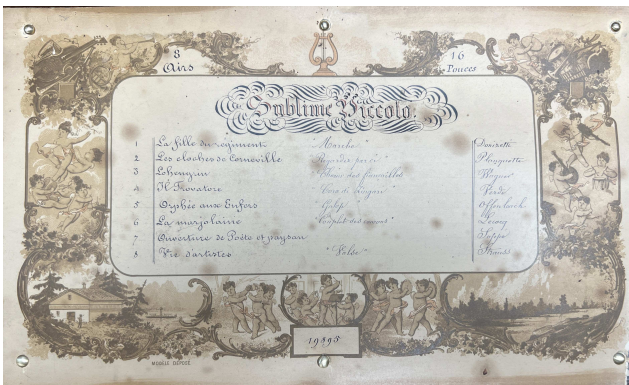 8 Airs
16 Pouces
Sublime Piccolo.
1 La fille du régiment Marche Donizetti
2 Les cloches de Corneville "Regardez par ci" Planquette
3 Lohengrin "Chœur des fiançailles" Wagner
4 Il Trovatore Verdi
5 Orphée aux Enfers "Galop" Offenbach
6 La marjolaine Lecocq
7 Ouverture de Poète et paysan Suppé
8 Vie d'artistes "Valse" Strauss
19895
MODÈLE DÉPOSÉ